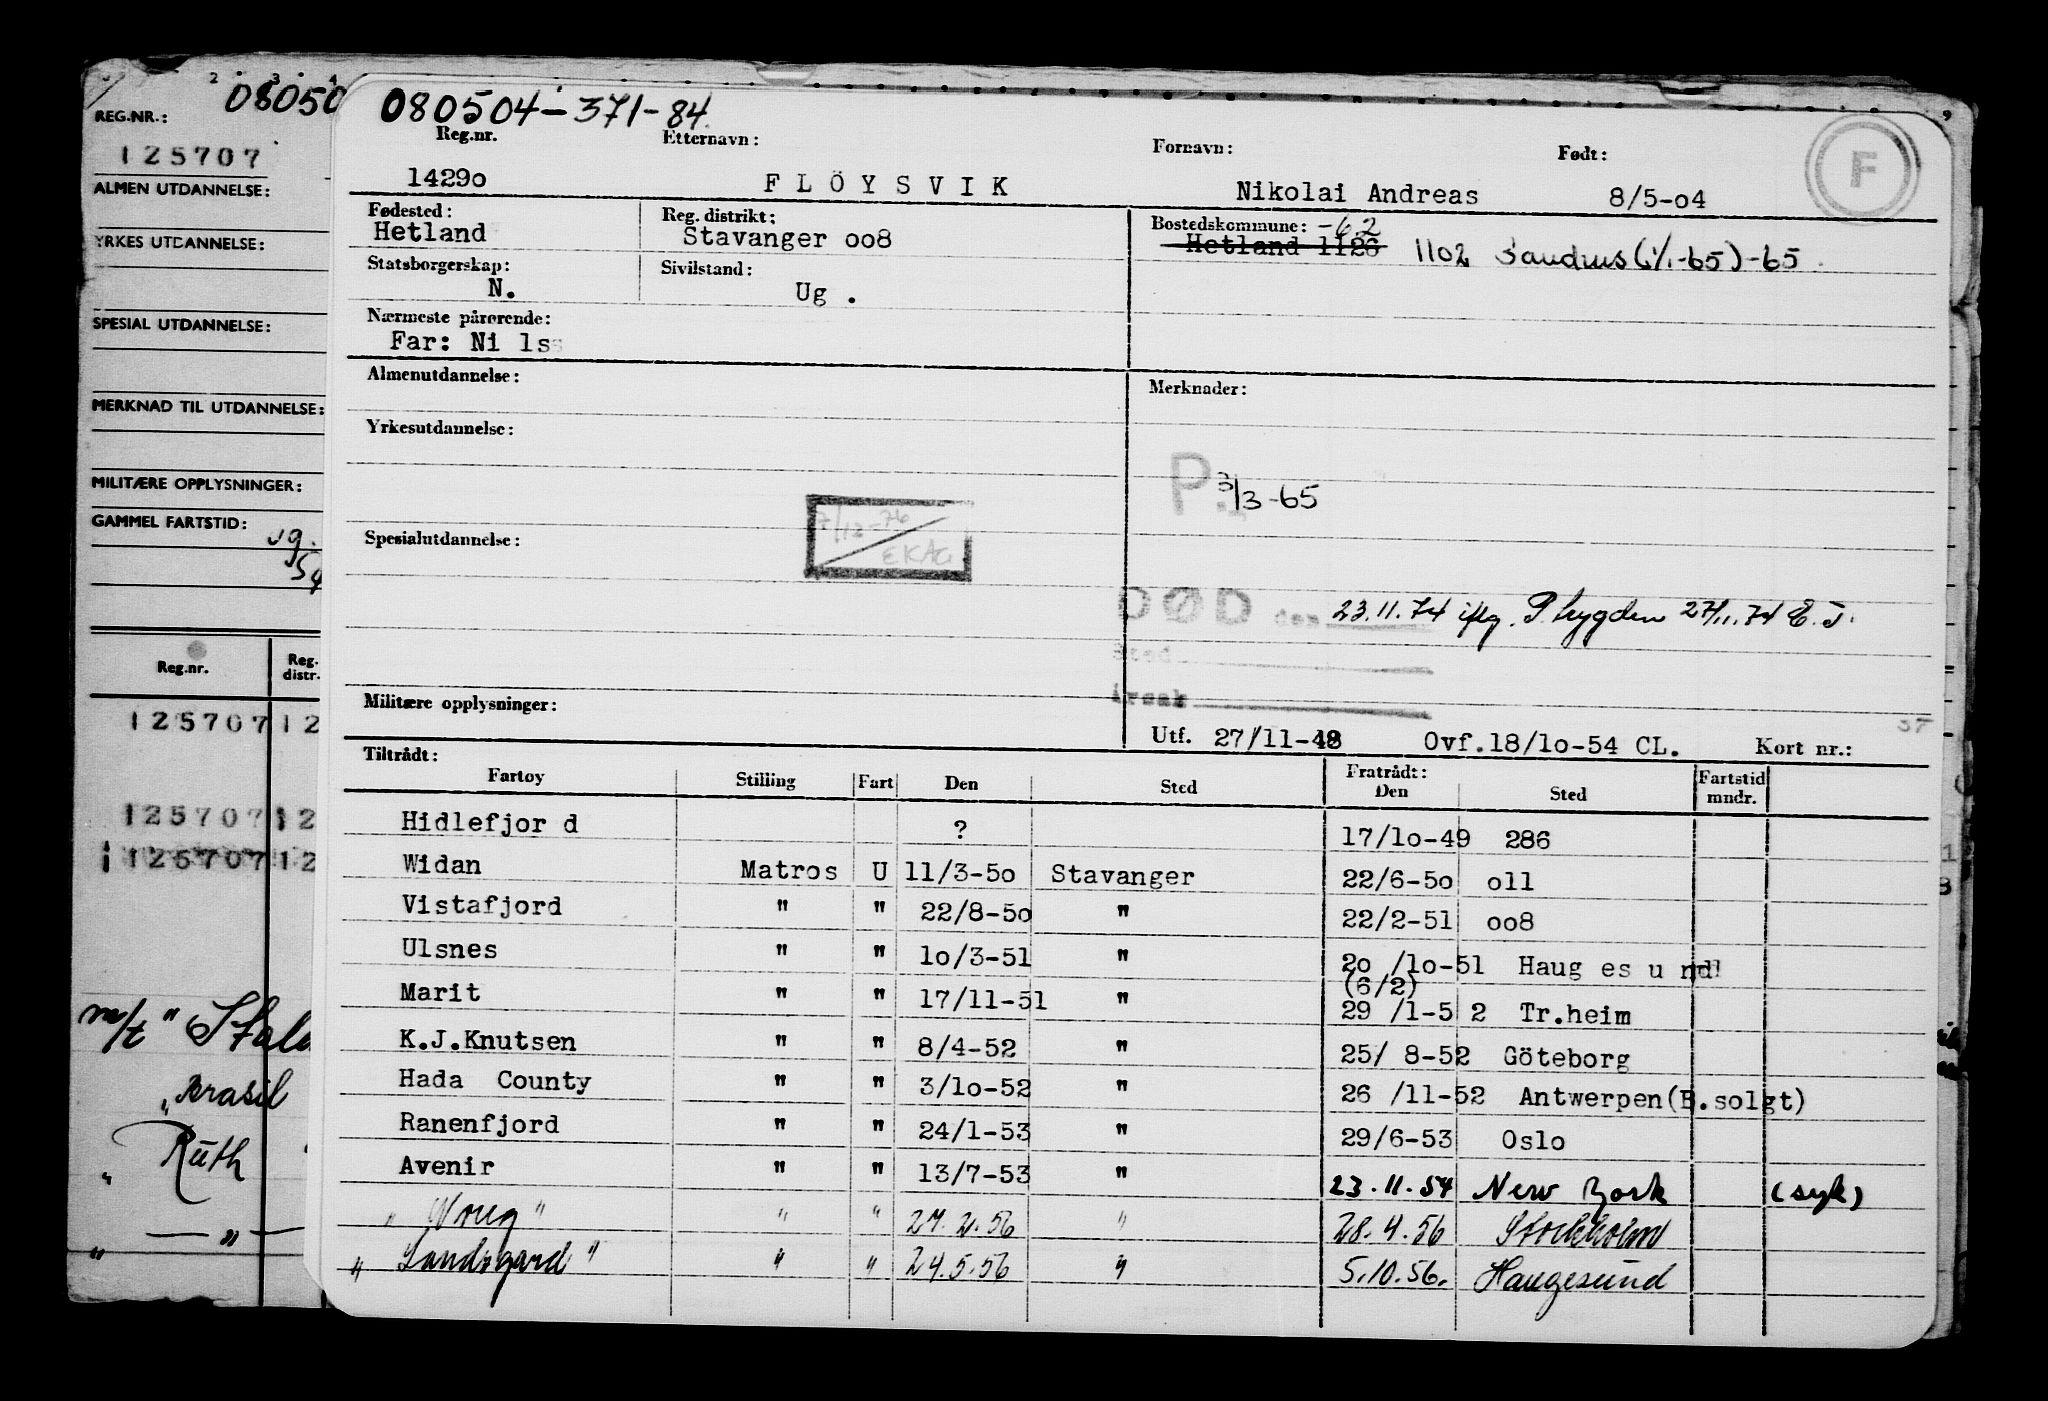 2 3 4
08050
REG.NR.:
125707
ALMEN UTDANNELSE:
YRKES UTDANNELSE:
SPESIAL UTDANNELSE:
MERKNAD TIL UTDANNELSE:
MILITÆRE OPPLYSNINGER:
GAMMEL FARTSTID:
Reg.nr. Reg. distr.
125707 12
125707 12
125707 12
m/t "
"Brasil
" Ruth
— " —
"
080504-371-84
Reg.nr. Etternavn: Fornavn: Født:
F
1429o FLÖYSVIK Nikolai Andreas 8/5-o4
Fødested: Reg. distrikt: Bostedskommune: -62
Hetland Stavanger oo8 Hetland 1126 1102 Sandnes (1/1-65)-65
Statsborgerskap: Sivilstand:
N. Ug.
Nærmeste pårørende:
Far: Nils
Almenutdannelse: Merknader:
Yrkesutdannelse:
P. 3/3-65
7/12-76
EKAG
Spesialutdannelse:
DØD den 23.11.74 iflg. P. trygden 27/11.74 E.J.
Sted
Årsak
Militære opplysninger:
Utf. 27/11-48 Ovf.18/1o-54 CL. Kort nr.:
Tiltrådt: Fratrådt:
Fartøy Stilling Fart Den Sted Den Sted Fartstid mndr.
Hidlefjord ? 17/1o-49 286
Widan Matros U 11/3-5o Stavanger 22/6-5o o11
Vistafjord " " 22/8-5o " 22/2-51 oo8
Ulsnes " " 1o/3-51 " 2o/1o-51 Haugesund
Marit " " 17/11-51 " (6/2) 29/1-52 Tr.heim
K.J.Knutsen " " 8/4-52 " 25/8-52 Göteborg
Hada County " " 3/1o-52 " 26/11-52 Antwerpen(B.solgt)
Ranenfjord " " 24/1-53 " 29/6-53 Oslo
Avenir " " 13/7-53 " 23.11.54 New York (syk)
" " " 27.2.56 " 28.4.56 Stockholm
" Sandsgard " " " 24.5.56 " 5.10.56. Haugesund